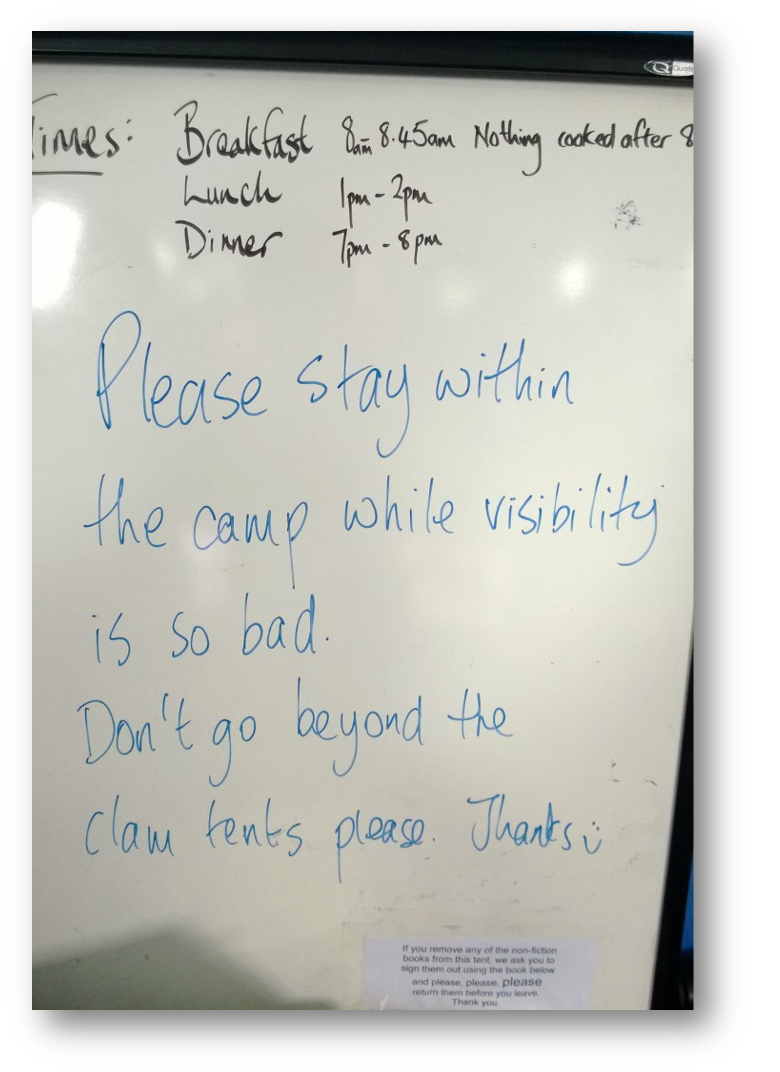 Times: Breakfast 8am - 8.45am Nothing cooked after 8
Lunch 1pm - 2pm
Dinner 7pm - 8pm
Please stay within
the camp while visibility
is so bad.
Don't go beyond the
clam tents please. Thanks :)
If you remove any of the non-fiction
books from this tent, we ask you to
sign them out using the book below
and please, please, please
return them before you leave.
Thank you.